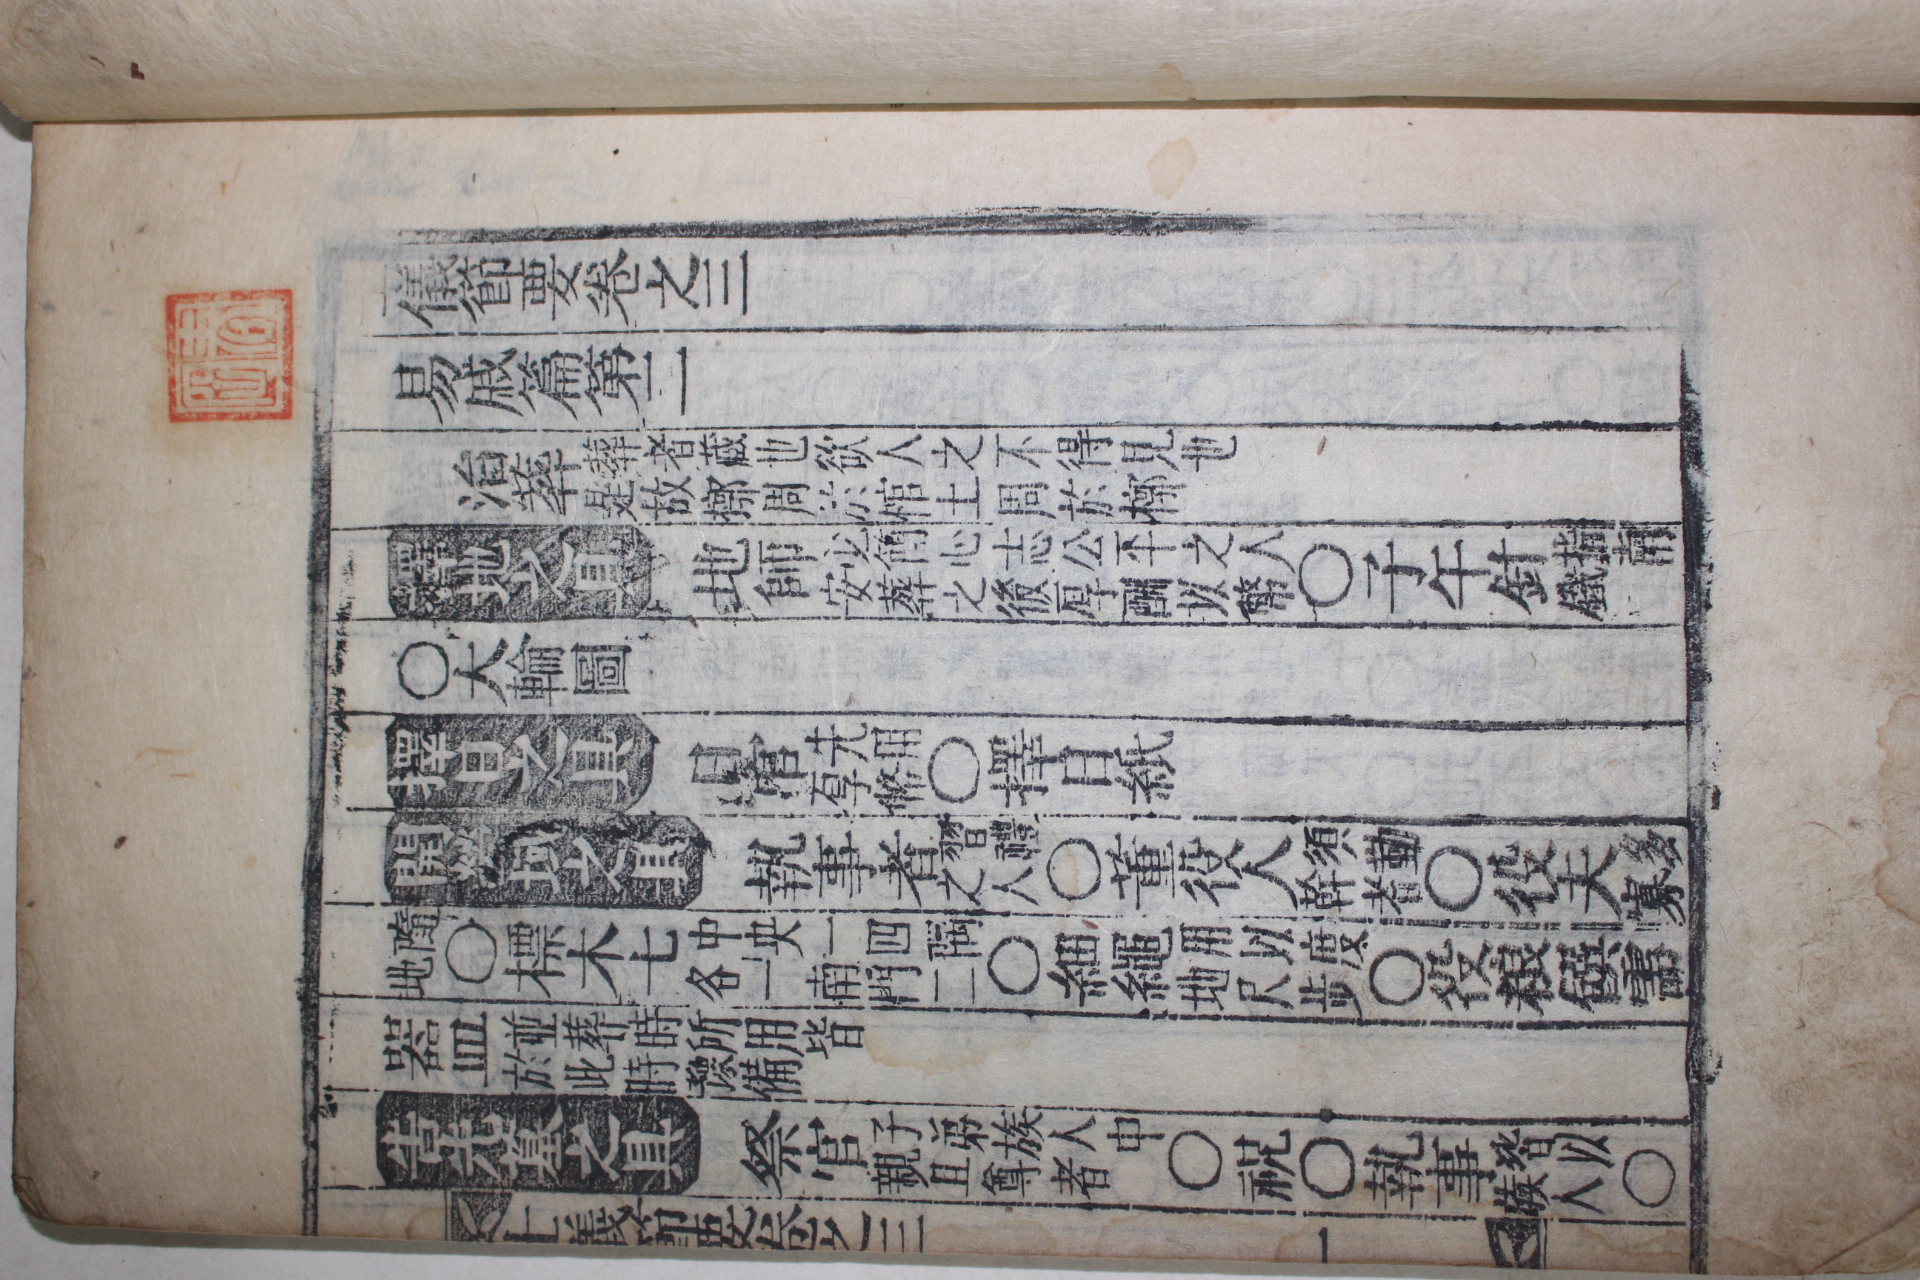 士儀節要卷之三
易戚篇第二
治葬葬者藏也欲人之不得見也是故槨周於棺土周於槨
擇地之具 地師必簡心志公平之人安葬之後厚酬以幣〇子午針指南鐵
〇大輪圖
擇日之具 日官先用厚幣〇擇日紙
開塋域之具 執事者習禮之人〇董役人須勤幹者〇役夫多寡
隨地〇標木七中央一四隅各一南門二〇細繩用以度地尺步〇役粮饌需
器皿並葬時所用皆於此時豫備
告先墓之具 祭官子弟族人中親且尊者〇祝〇執事皆以族人〇
士儀節要卷之三 一